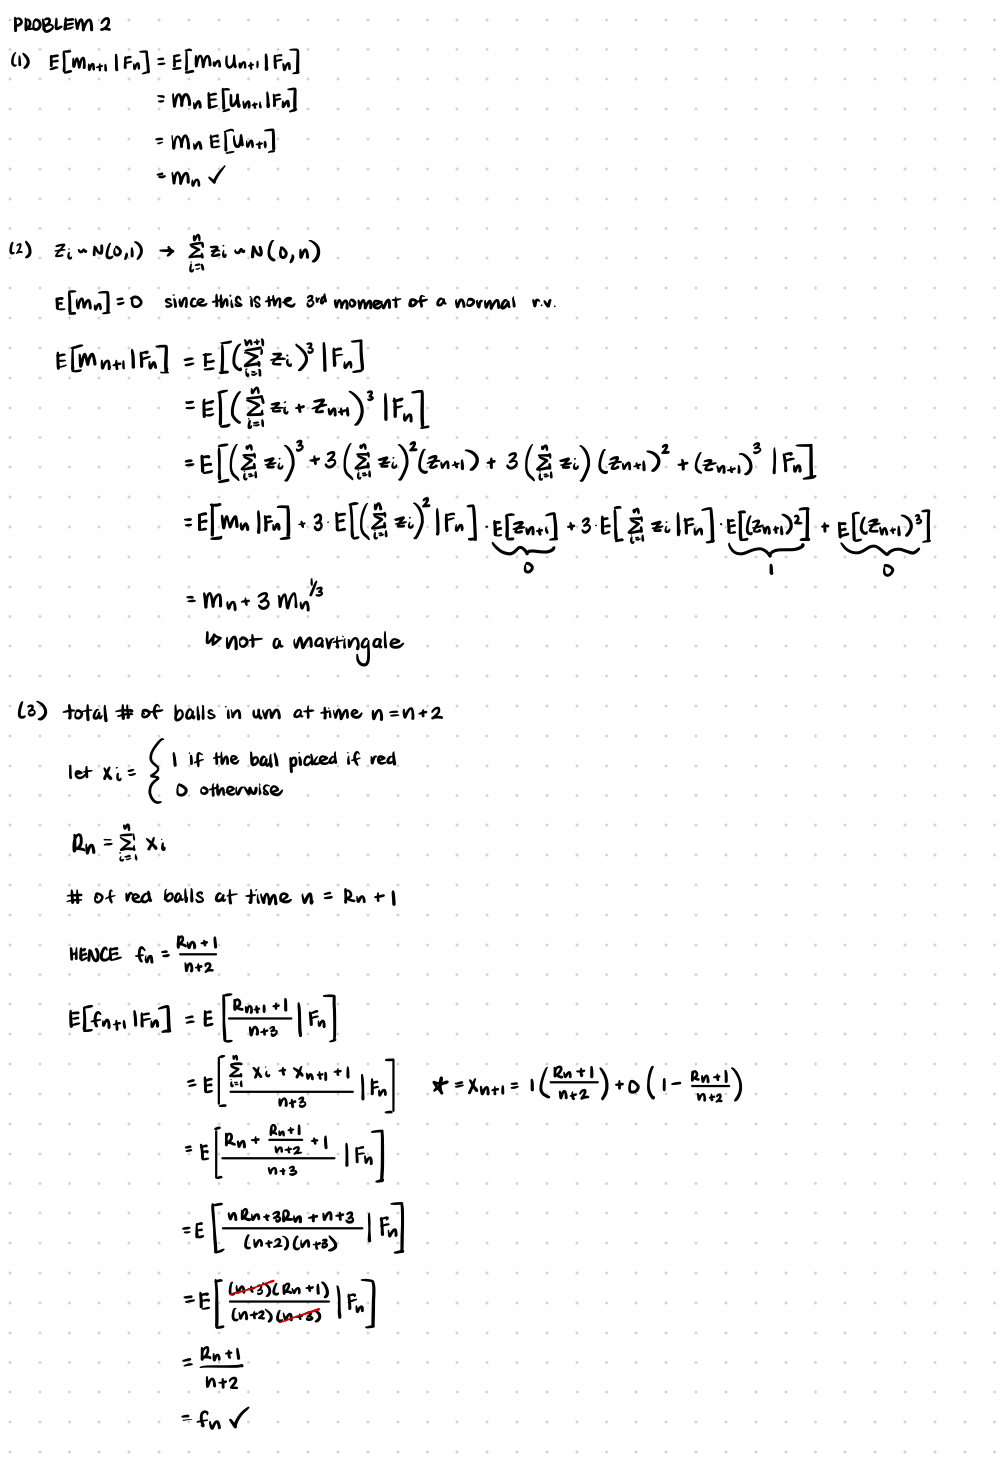 PROBLEM 2
(1) E[mₙ₊₁ | Fₙ] = E[mₙ uₙ₊₁ | Fₙ]
= mₙ E[uₙ₊₁ | Fₙ]
= mₙ E[uₙ₊₁]
= mₙ ✓
(2) zᵢ ~ N(0,1) → ∑ᵢ₌₁ⁿ zᵢ ~ N(0,n)
E[mₙ] = 0 since this is the 3rd moment of a normal r.v.
E[mₙ₊₁ | Fₙ] = E[(∑ᵢ₌₁ⁿ⁺¹ zᵢ)³ | Fₙ]
= E[(∑ᵢ₌₁ⁿ zᵢ + zₙ₊₁)³ | Fₙ]
= E[(∑ᵢ₌₁ⁿ zᵢ)³ + 3(∑ᵢ₌₁ⁿ zᵢ)²(zₙ₊₁) + 3(∑ᵢ₌₁ⁿ zᵢ)(zₙ₊₁)² + (zₙ₊₁)³ | Fₙ]
= E[mₙ | Fₙ] + 3·E[(∑ᵢ₌₁ⁿ zᵢ)² | Fₙ] · E[zₙ₊₁] + 3·E[∑ᵢ₌₁ⁿ zᵢ | Fₙ] · E[(zₙ₊₁)²] + E[(zₙ₊₁)³]
0 1 0
= mₙ + 3 mₙ^1/3
↳ not a martingale
(3) total # of balls in urn at time n = n+2
let xᵢ = { 1 if the ball picked if red
0 otherwise
Rₙ = ∑ᵢ₌₁ⁿ xᵢ
# of red balls at time n = Rₙ + 1
HENCE fₙ = (Rₙ+1)/(n+2)
E[fₙ₊₁ | Fₙ] = E[(Rₙ₊₁+1)/(n+3) | Fₙ]
= E[(∑ᵢ₌₁ⁿ xᵢ + xₙ₊₁ + 1)/(n+3) | Fₙ] * = xₙ₊₁ = 1((Rₙ+1)/(n+2)) + 0(1 - (Rₙ+1)/(n+2))
= E[(Rₙ + (Rₙ+1)/(n+2) + 1)/(n+3) | Fₙ]
= E[(nRₙ+3Rₙ+n+3)/((n+2)(n+3)) | Fₙ]
= E[((n+3)(Rₙ+1))/((n+2)(n+3)) | Fₙ]
= (Rₙ+1)/(n+2)
= fₙ ✓